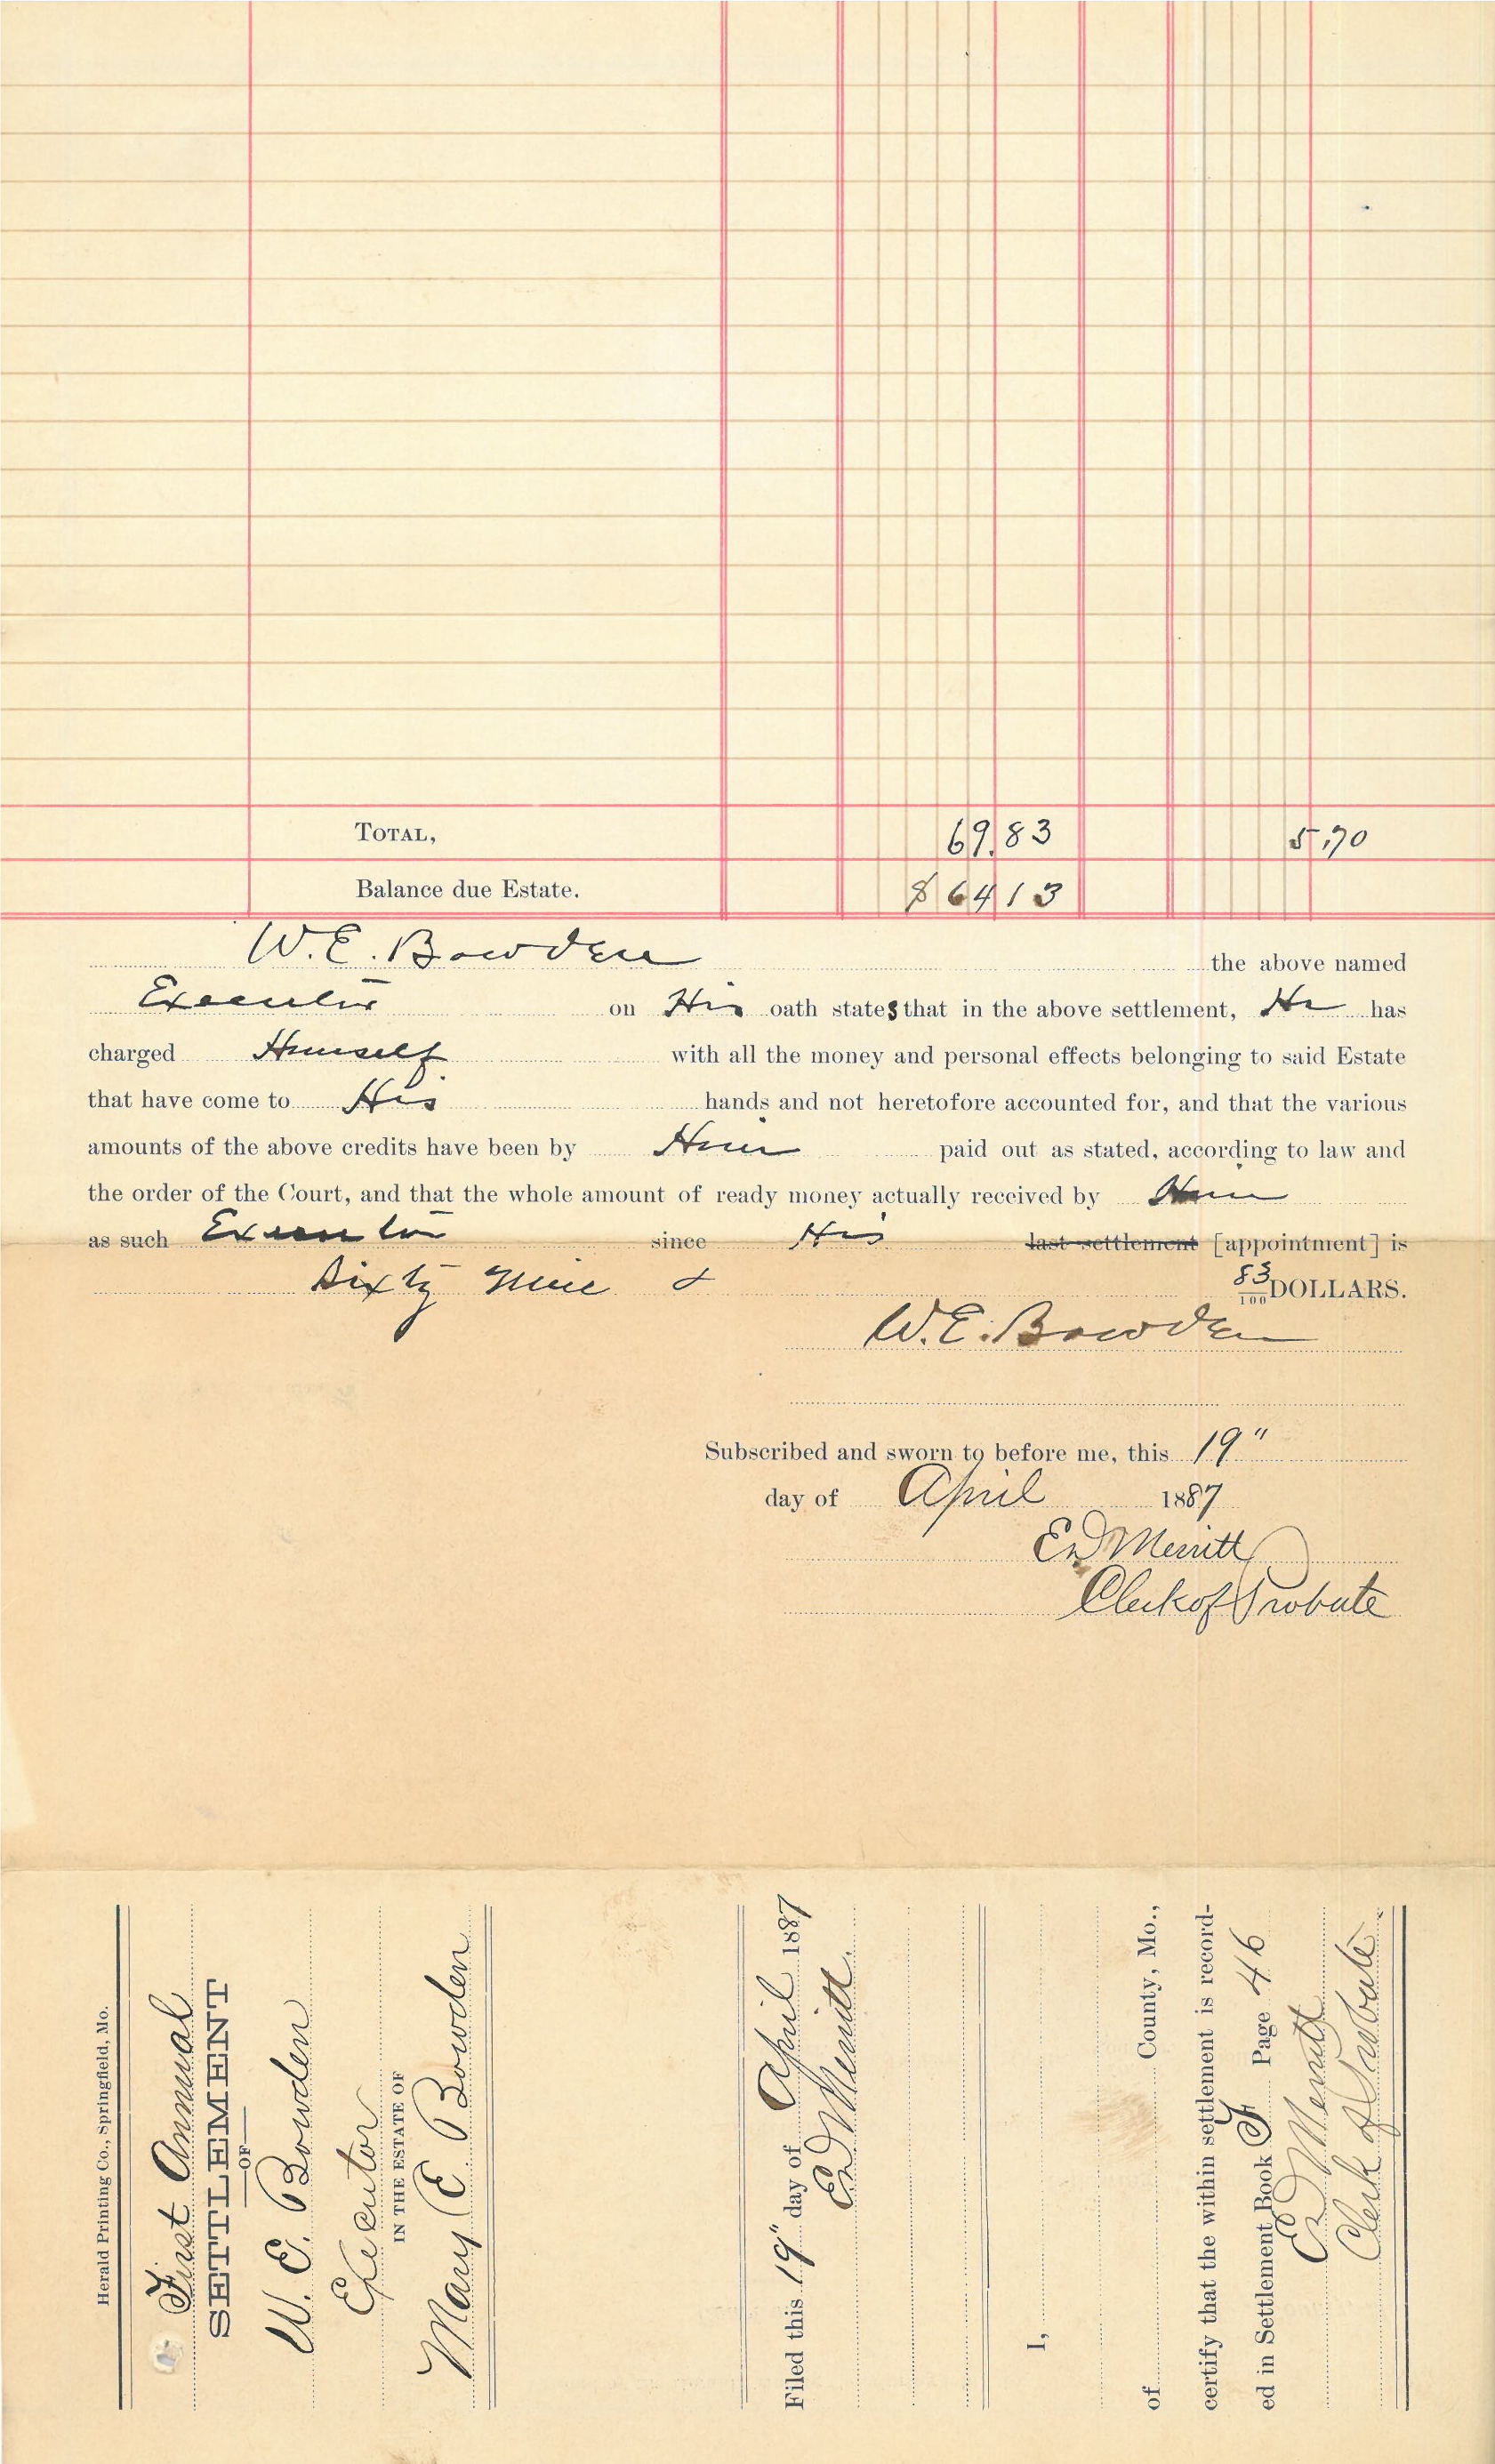 TOTAL, 69.83 5.70
Balance due Estate. $64 13
W. E. Bowden the above named
Executor on His oath states that in the above settlement, He has
charged Himself with all the money and personal effects belonging to said Estate
that have come to His hands and not heretofore accounted for, and that the various
amounts of the above credits have been by Him paid out as stated, according to law and
the order of the Court, and that the whole amount of ready money actually received by Him
as such Executor since His last settlement [appointment] is
Sixty Nine & 83/100 DOLLARS.
W. E. Bowden
Subscribed and sworn to before me, this 19"
day of April 1887
ED Merritt
Clerk of Probate
Herald Printing Co., Springfield, Mo.
First Annual
SETTLEMENT
OF
W. E. Bowden
Executor
IN THE ESTATE OF
Mary E Bowden
Filed this 19" day of April 1887
ED Merritt.
I,
of County, Mo.,
certify that the within settlement is record-
ed in Settlement Book F Page 46
ED Merritt
Clerk of Probate.